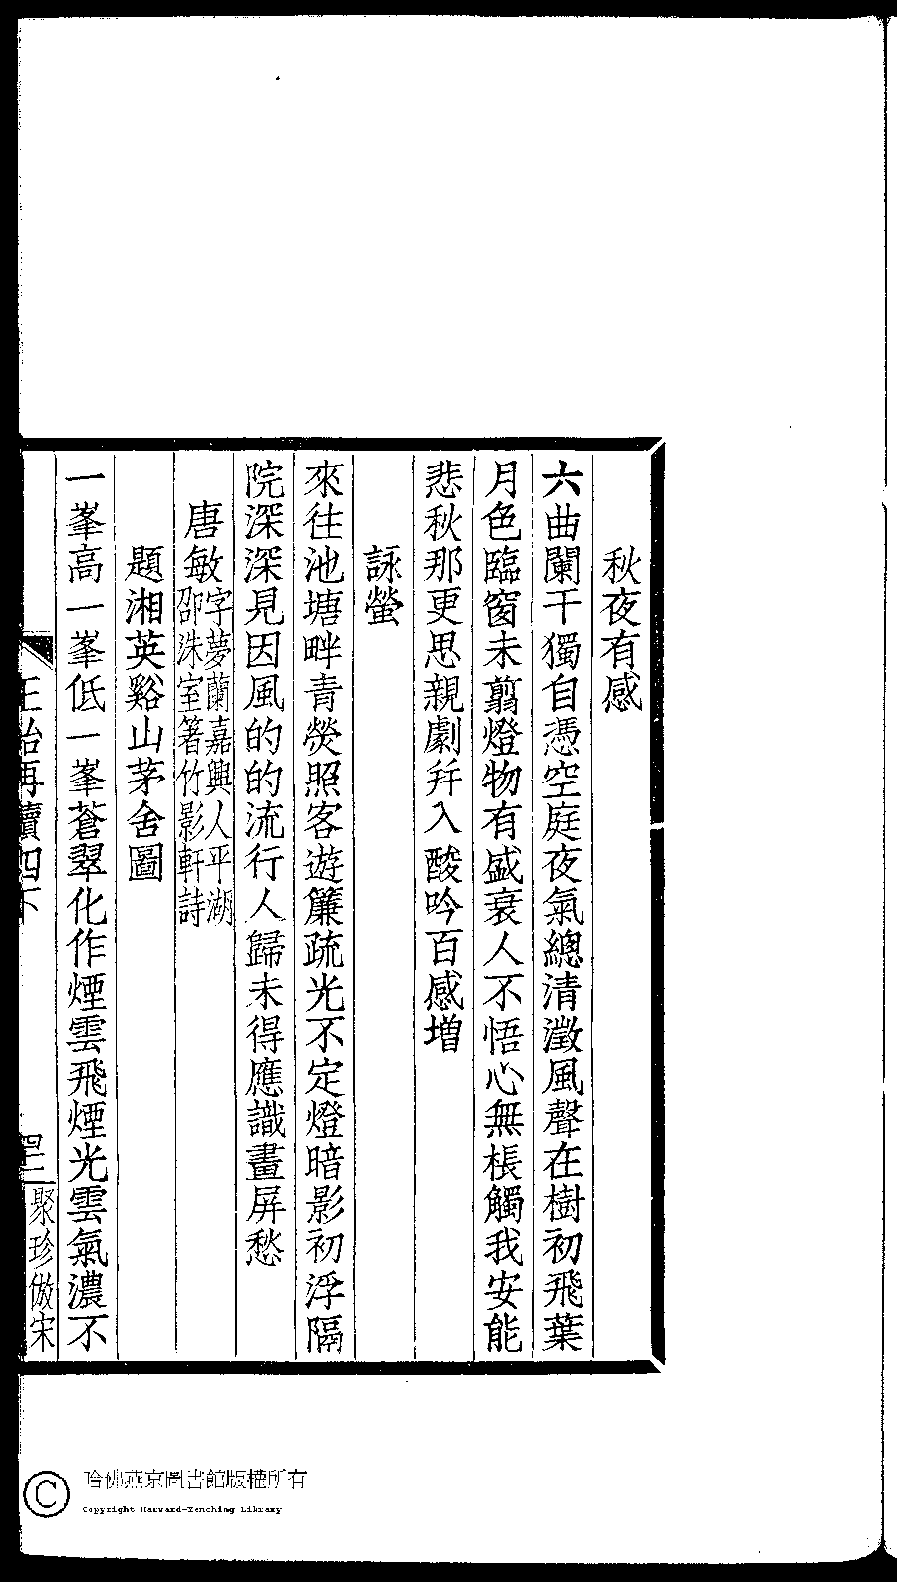 秋夜有感
六曲闌干獨自憑空庭夜氣總清澂風聲在樹初飛葉
月色臨窗未翦燈物有盛衰人不悟心無棖觸我安能
悲秋那更思親劇拜入酸吟百感增
詠螢
來往池塘畔青熒照客遊簾疏光不定燈暗影初浮隔
院深深見因風的的流行人歸未得應識畫屏愁
唐敏字夢蘭嘉興人平湖
邵洙室箸竹影軒詩
題湘英谿山茅舍圖
一峯高一峯低一峯蒼翠化作煙雲飛煙光雲氣濃不
再續四下
聚珍倣宋
哈佛燕京圖書館版權所有
Copyright Harvard-Yenching Library